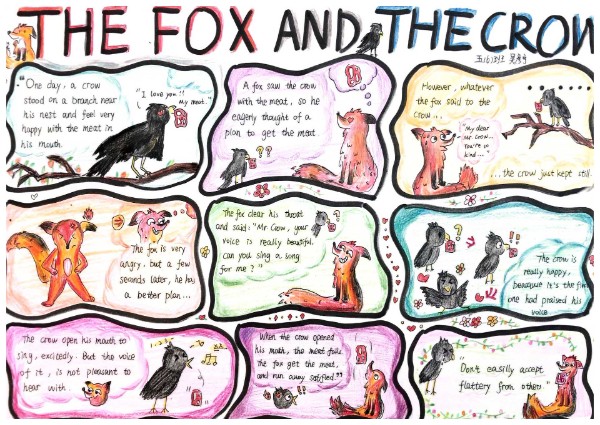 THE FOX AND THE CROW
"One day, a crow
stood on a branch near
his nest and feel very
happy with the meat in
his mouth.
"I love you!!
My meat."
A fox saw the crow
with the meat, so he
eagerly thought of a
plan to get the meat.
??
However, whatever
the fox said to the
crow...
"My dear
Mr. Crow...
You're so
kind..."
...the crow just kept still.
The fox is very
angry, but a few
seconds later, he has
a better plan...
The fox clear his throat
and said: "Mr Crow, your
voice is really beautiful,
can you sing a song
for me?"
?
The crow is
really happy,
because it's the first
one had praised his
voice
The crow open his mouth to
sing, excitedly. But the voice
of it, is not pleasant to
hear with.
When the crow opened
his moth, the meat falls.
The fox get the meat,
and run away satified."
"Don't easilly accept
flattery from others."